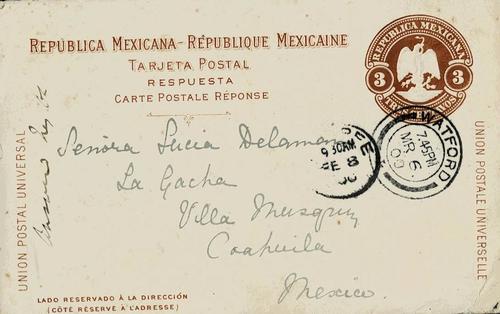 REPUBLICA MEXICANA-RÉPUBLIQUE MEXICAINE
TARJETA POSTAL
RESPUESTA
CARTE POSTALE RÉPONSE
REPUBLICA MEXICANA
3 3
UNION POSTAL UNIVERSAL
Señora Lucia Delamar
La Gacha
Villa Musquiz
Coahuila
Mexico.
9 30AM
FE 8
00
WATFORD
7.45PM
MR 6
00
UNION POSTALE UNIVERSELLE
LADO RESERVADO À LA DIRECCIÓN
(CÔTÉ RÉSERVÉ À L'ADRESSE)